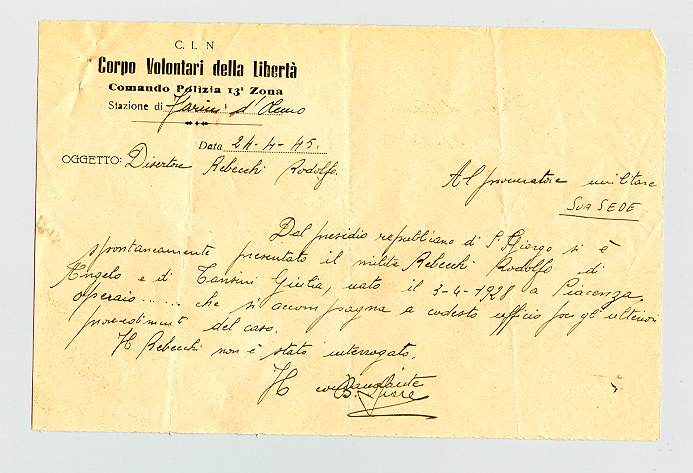 C. L. N
Corpo Volontari della Libertà
Comando Polizia 13ª Zona
Stazione di Farini d'Olmo
Data 24-4-45.
OGGETTO: Disertore Rebecchi Rodolfo.
Al procuratore militare
SUA SEDE
Dal presidio repubbliano di S. Giorgo si è
spontaneamente presentato il milite Rebecchi Rodolfo di
Angelo e di Tansini Giulia, nato il 3-4-1928 a Piacenza,
operaio ...... che si accompagna a codesto ufficio per gl' ulteriori
provvedimenti del caso.
Il Rebecchi non è stato interrogato.
Il comandante
B.